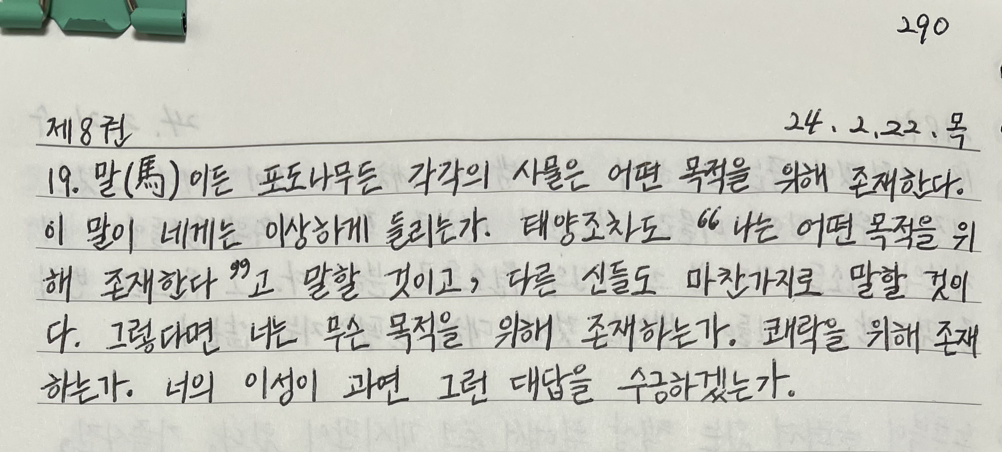 290
제8권 24. 2. 22. 목
19. 말(馬)이든 포도나무든 각각의 사물은 어떤 목적을 위해 존재한다.
이 말이 네게는 이상하게 들리는가. 태양조차도 “나는 어떤 목적을 위
해 존재한다”고 말할 것이고, 다른 신들도 마찬가지로 말할 것이
다. 그렇다면 너는 무슨 목적을 위해 존재하는가. 쾌락을 위해 존재
하는가. 너의 이성이 과연 그런 대답을 수긍하겠는가.